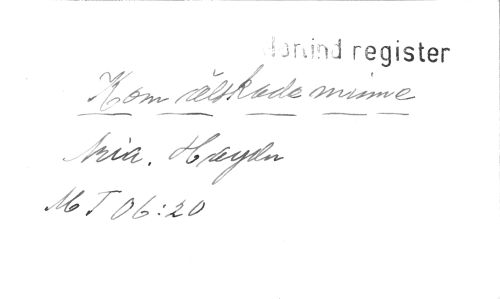 register
Kom älskade minne
Aria. Haydn
MT 06:20